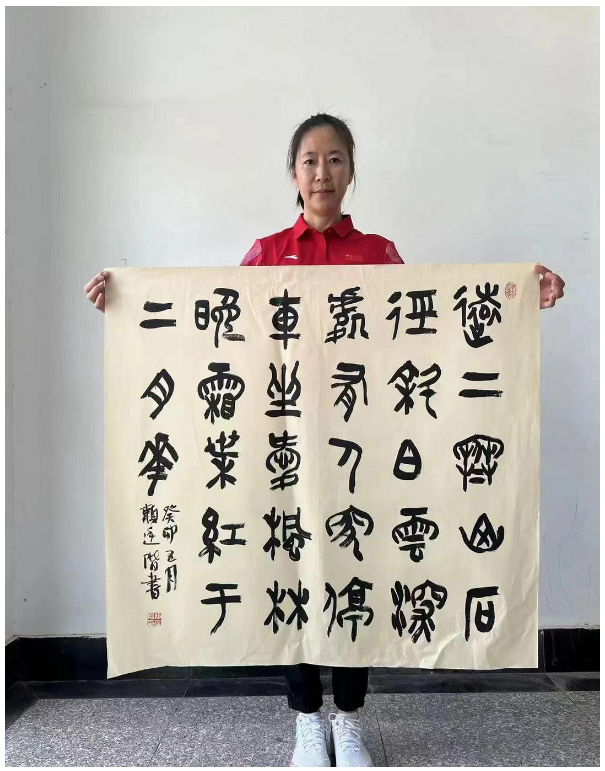 遠上寒山石
徑斜白雲深
處有人家停
車坐愛楓林
晚霜葉紅于
二月華
癸卯五月
階書